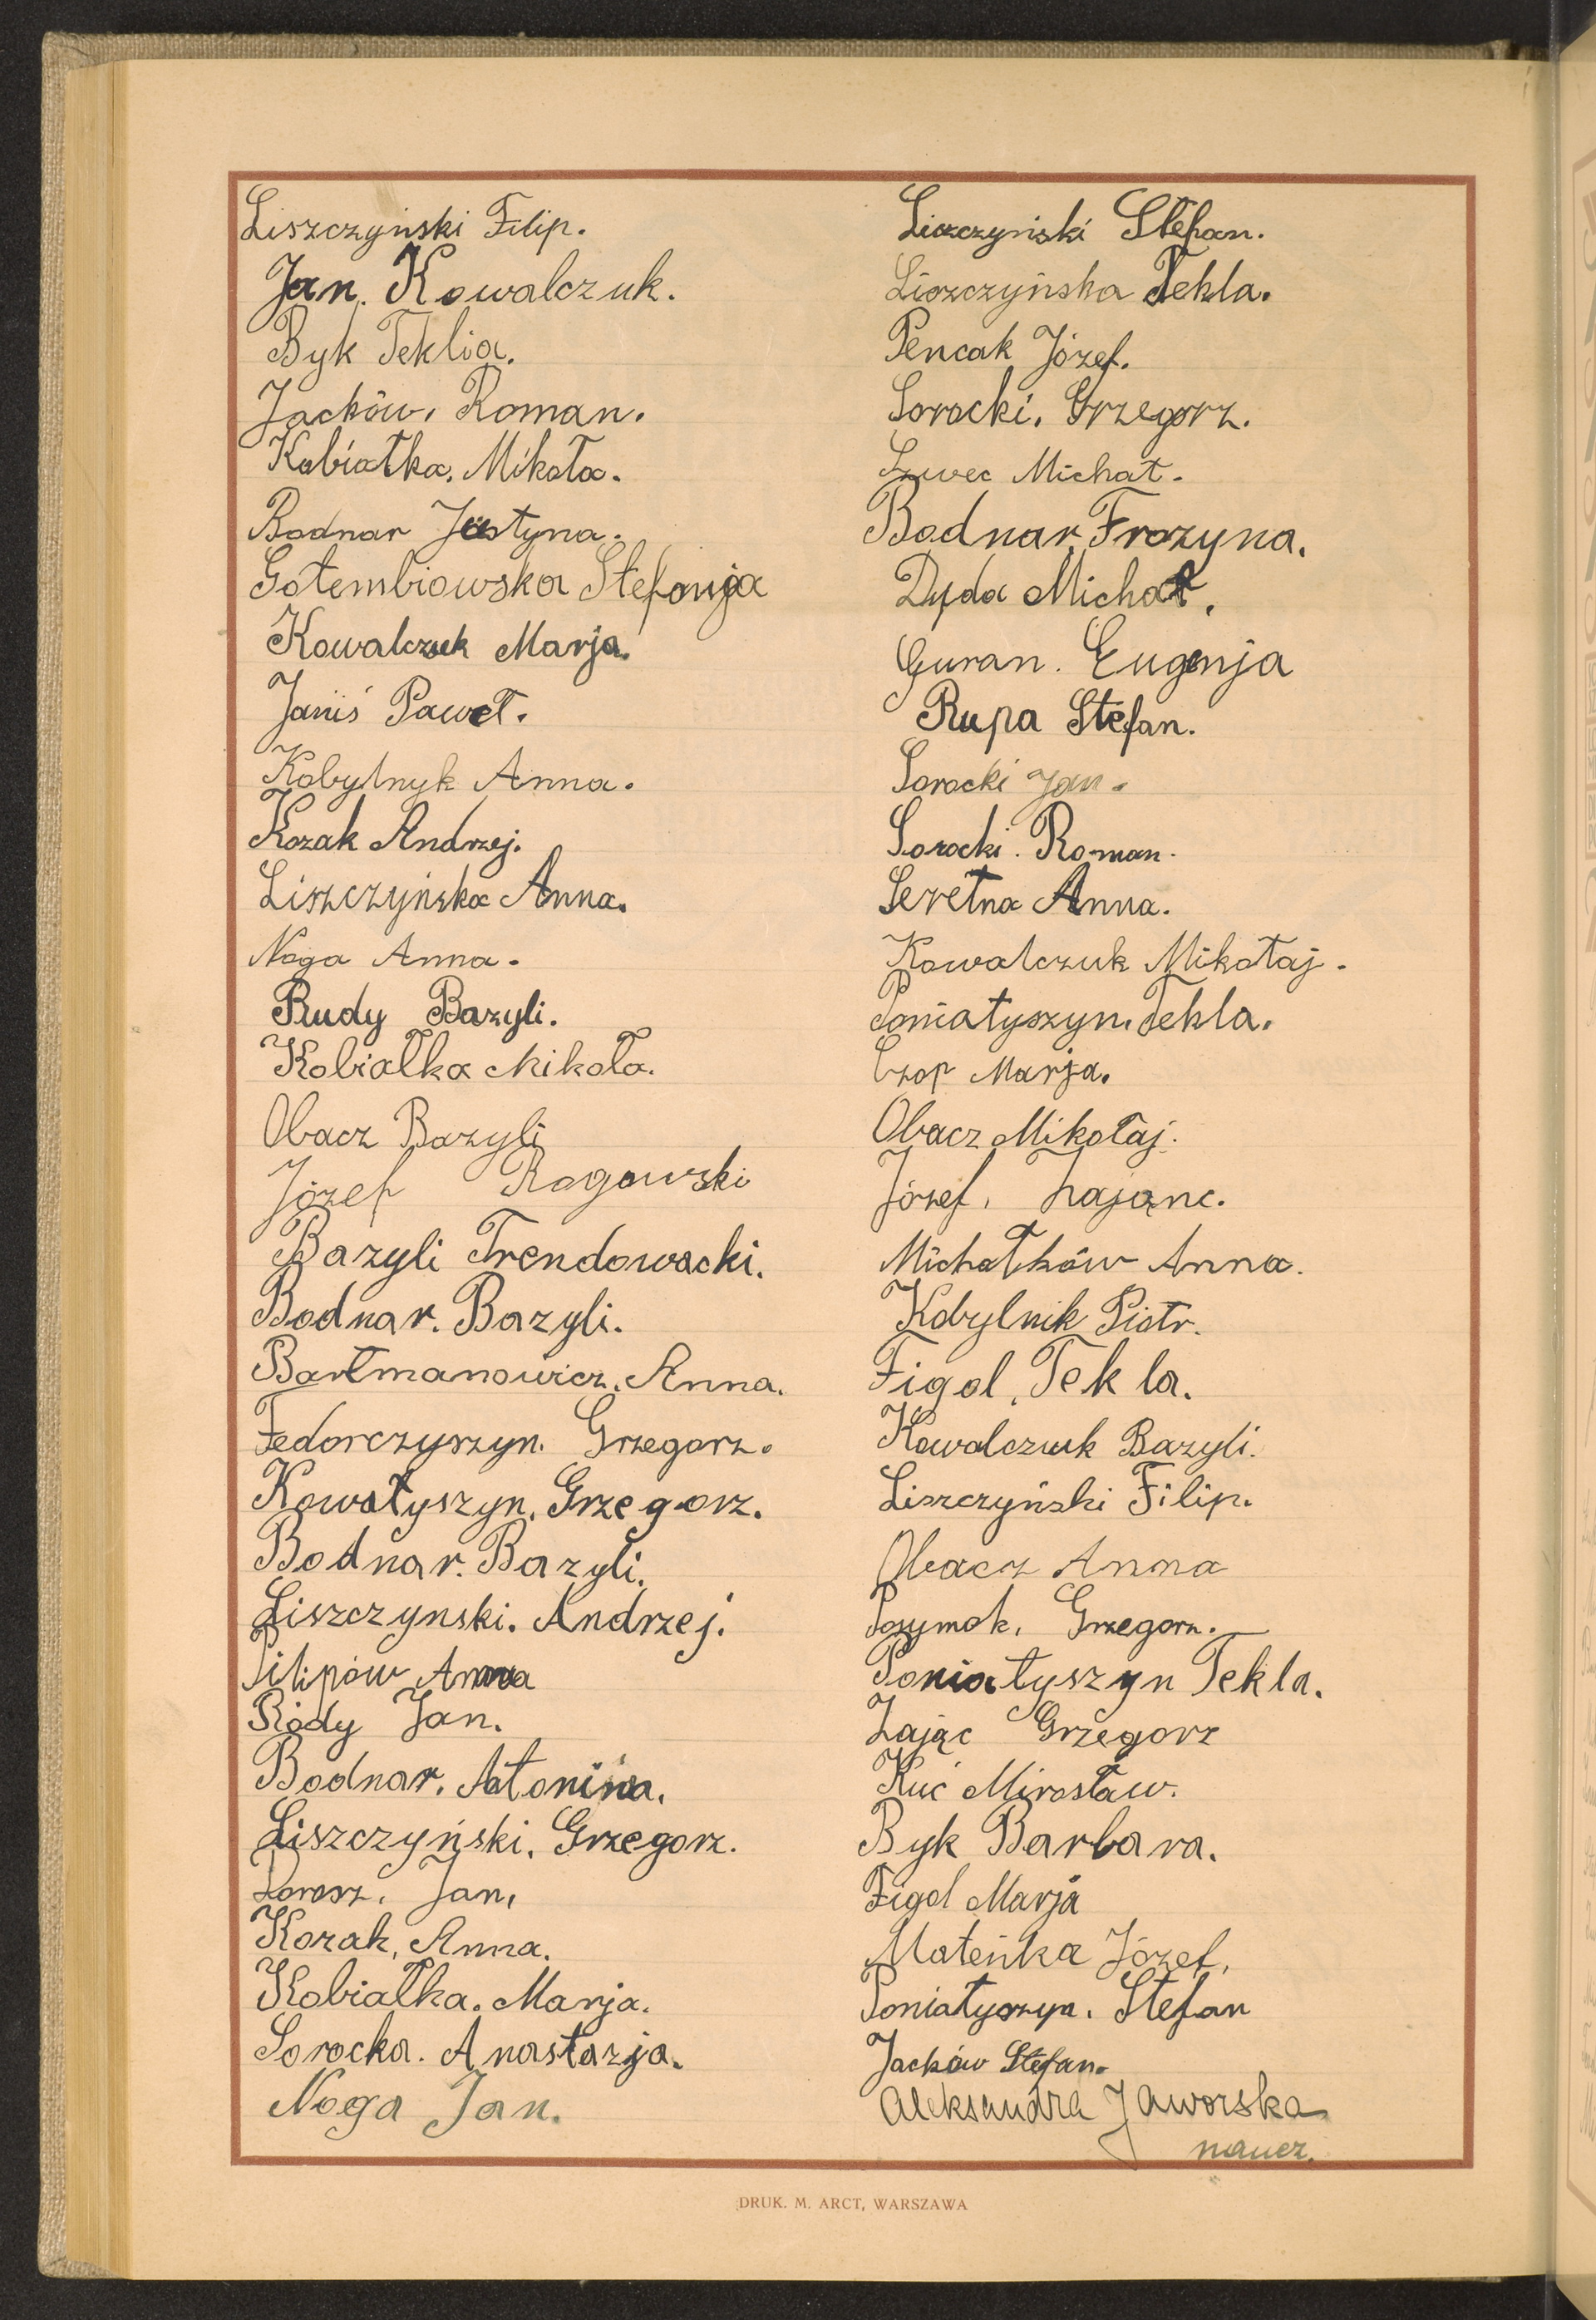 Liszczyński Filip.
Jan. Kowalczuk.
Byk Teklia.
Jacków. Roman.
Kobiałka. Mikoła.
Bodnar Justyna.
Gołembiowska Stefanja
Kowalczuk Marja.
Janiś Paweł.
Kobylnyk Anna.
Kozak Andrzej.
Liszczyńska Anna.
Noga Anna.
Rudy Bazyli.
Kobiałka Mikoła.
Obacz Bazyli
Józef Rogowski
Bazyli Trendowacki.
Bodnar. Bazyli.
Bartmanowicz. Anna.
Fedorczyszyn. Grzegorz.
Kowałyszyn. Grzegorz.
Bodnar. Bazyli.
Liszczynski. Andrzej.
Pilipów Anna
Ródy Jan.
Bodnar. Antonina.
Liszczyński. Grzegorz.
Dorosz. Jan.
Kozak, Anna.
Kobiałka. Marja.
Sorocka. Anastazja.
Noga Jan.
Liszczyński Stefan.
Liszczyńska Tekla.
Pencak Józef.
Sorocki. Grzegorz.
Szwec Michał.
Bodnar Frozyna.
Dyda Michał.
Guran. Eugenja
Rupa Stefan.
Sorocki Jan.
Sorocki. Roman.
Seretna Anna.
Kowalczuk Mikołaj.
Poniatyszyn. Tekla.
Czop Marja.
Obacz Mikołaj.
Józef. Zająnc.
Michałków Anna.
Kobylnik Piotr.
Figol. Tekla.
Kowalczuk Bazyli.
Liszczyński Filip.
Obacz Anna
Grzegorz.
Poniatyszyn Tekla.
Zając Grzegorz
Kuć Mirosław.
Byk Barbara.
Figol Marja
Mateńka Józef.
Poniatyszyn. Stefan
Jacków Stefan.
Aleksandra Jaworska
naucz.
DRUK. M. ARCT, WARSZAWA